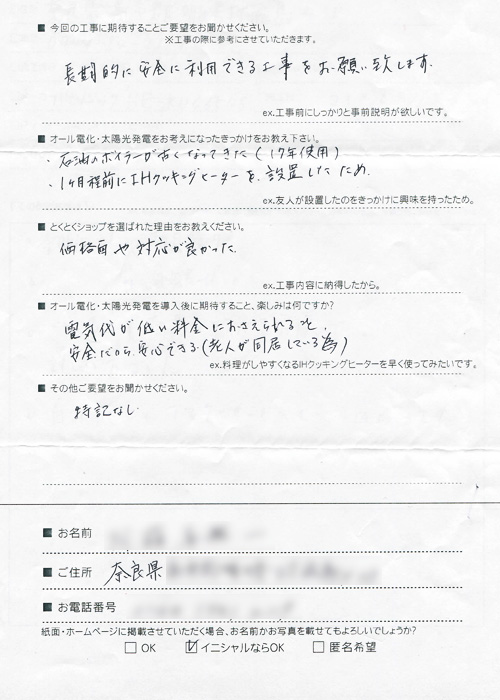 ■ 今回の工事に期待することご要望をお聞かせください。
※工事の際に参考にさせていただきます。
長期的に安全に利用できる工事をお願い致します.
ex.工事前にしっかりと事前説明が欲しいです。
■ オール電化・太陽光発電をお考えになったきっかけをお教え下さい。
・石油のボイラーが古くなってきた(17年使用)
・1ヶ月程前にIHクッキングヒーターを、設置したため.
ex.友人が設置したのをきっかけに興味を持ったため。
■ とくとくショップを選ばれた理由をお教えください。
価格面や対応が良かった.
ex.工事内容に納得したから。
■ オール電化・太陽光発電を導入後に期待すること、楽しみは何ですか?
電気代が低い料金におさえられること,
安全だから安心できる(老人が同居している為)
ex.料理がしやすくなるIHクッキングヒーターを早く使ってみたいです。
■ その他ご要望をお聞かせください。
特記なし
■ お名前
■ ご住所 奈良県
■ お電話番号
紙面・ホームページに掲載させていただく場合、お名前かお写真を載せてもよろしいでしょうか?
□ OK ☑ イニシャルならOK □ 匿名希望